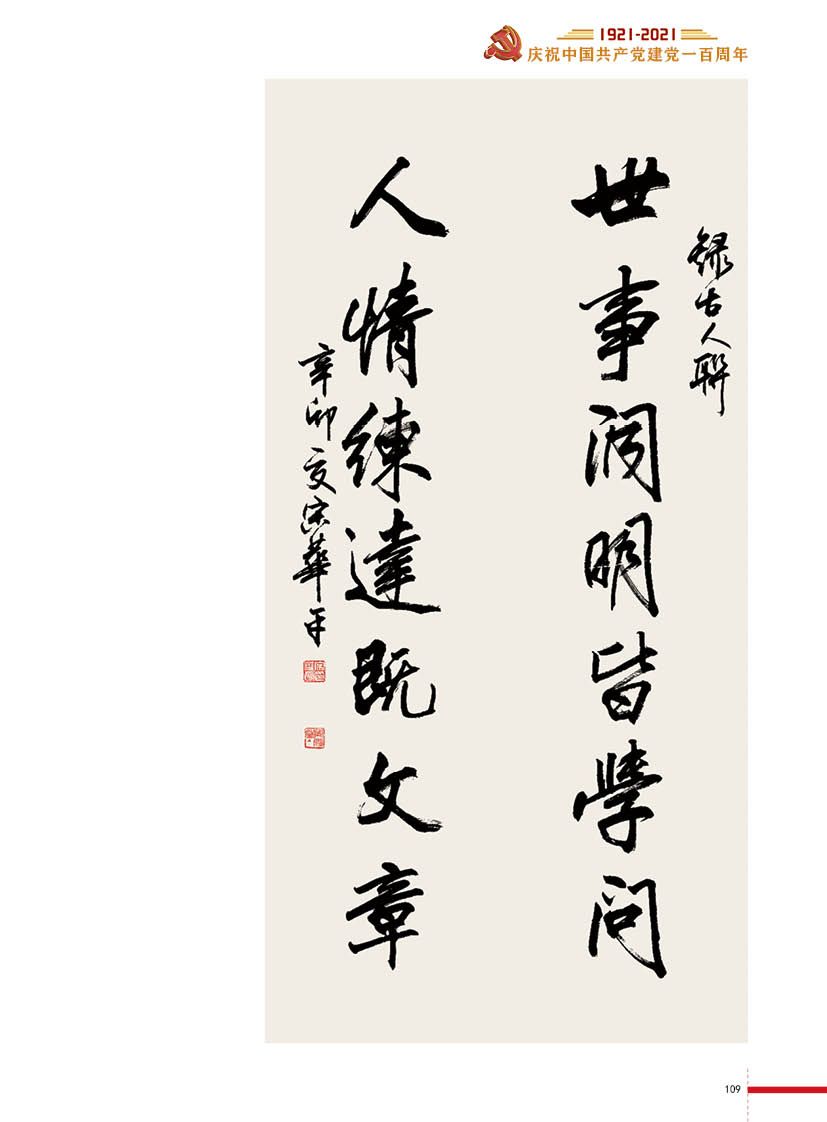 1921-2021
庆祝中国共产党建党一百周年
録古人聯
世事洞明皆學问
人情練達既文章
辛卯夏宋華平
109